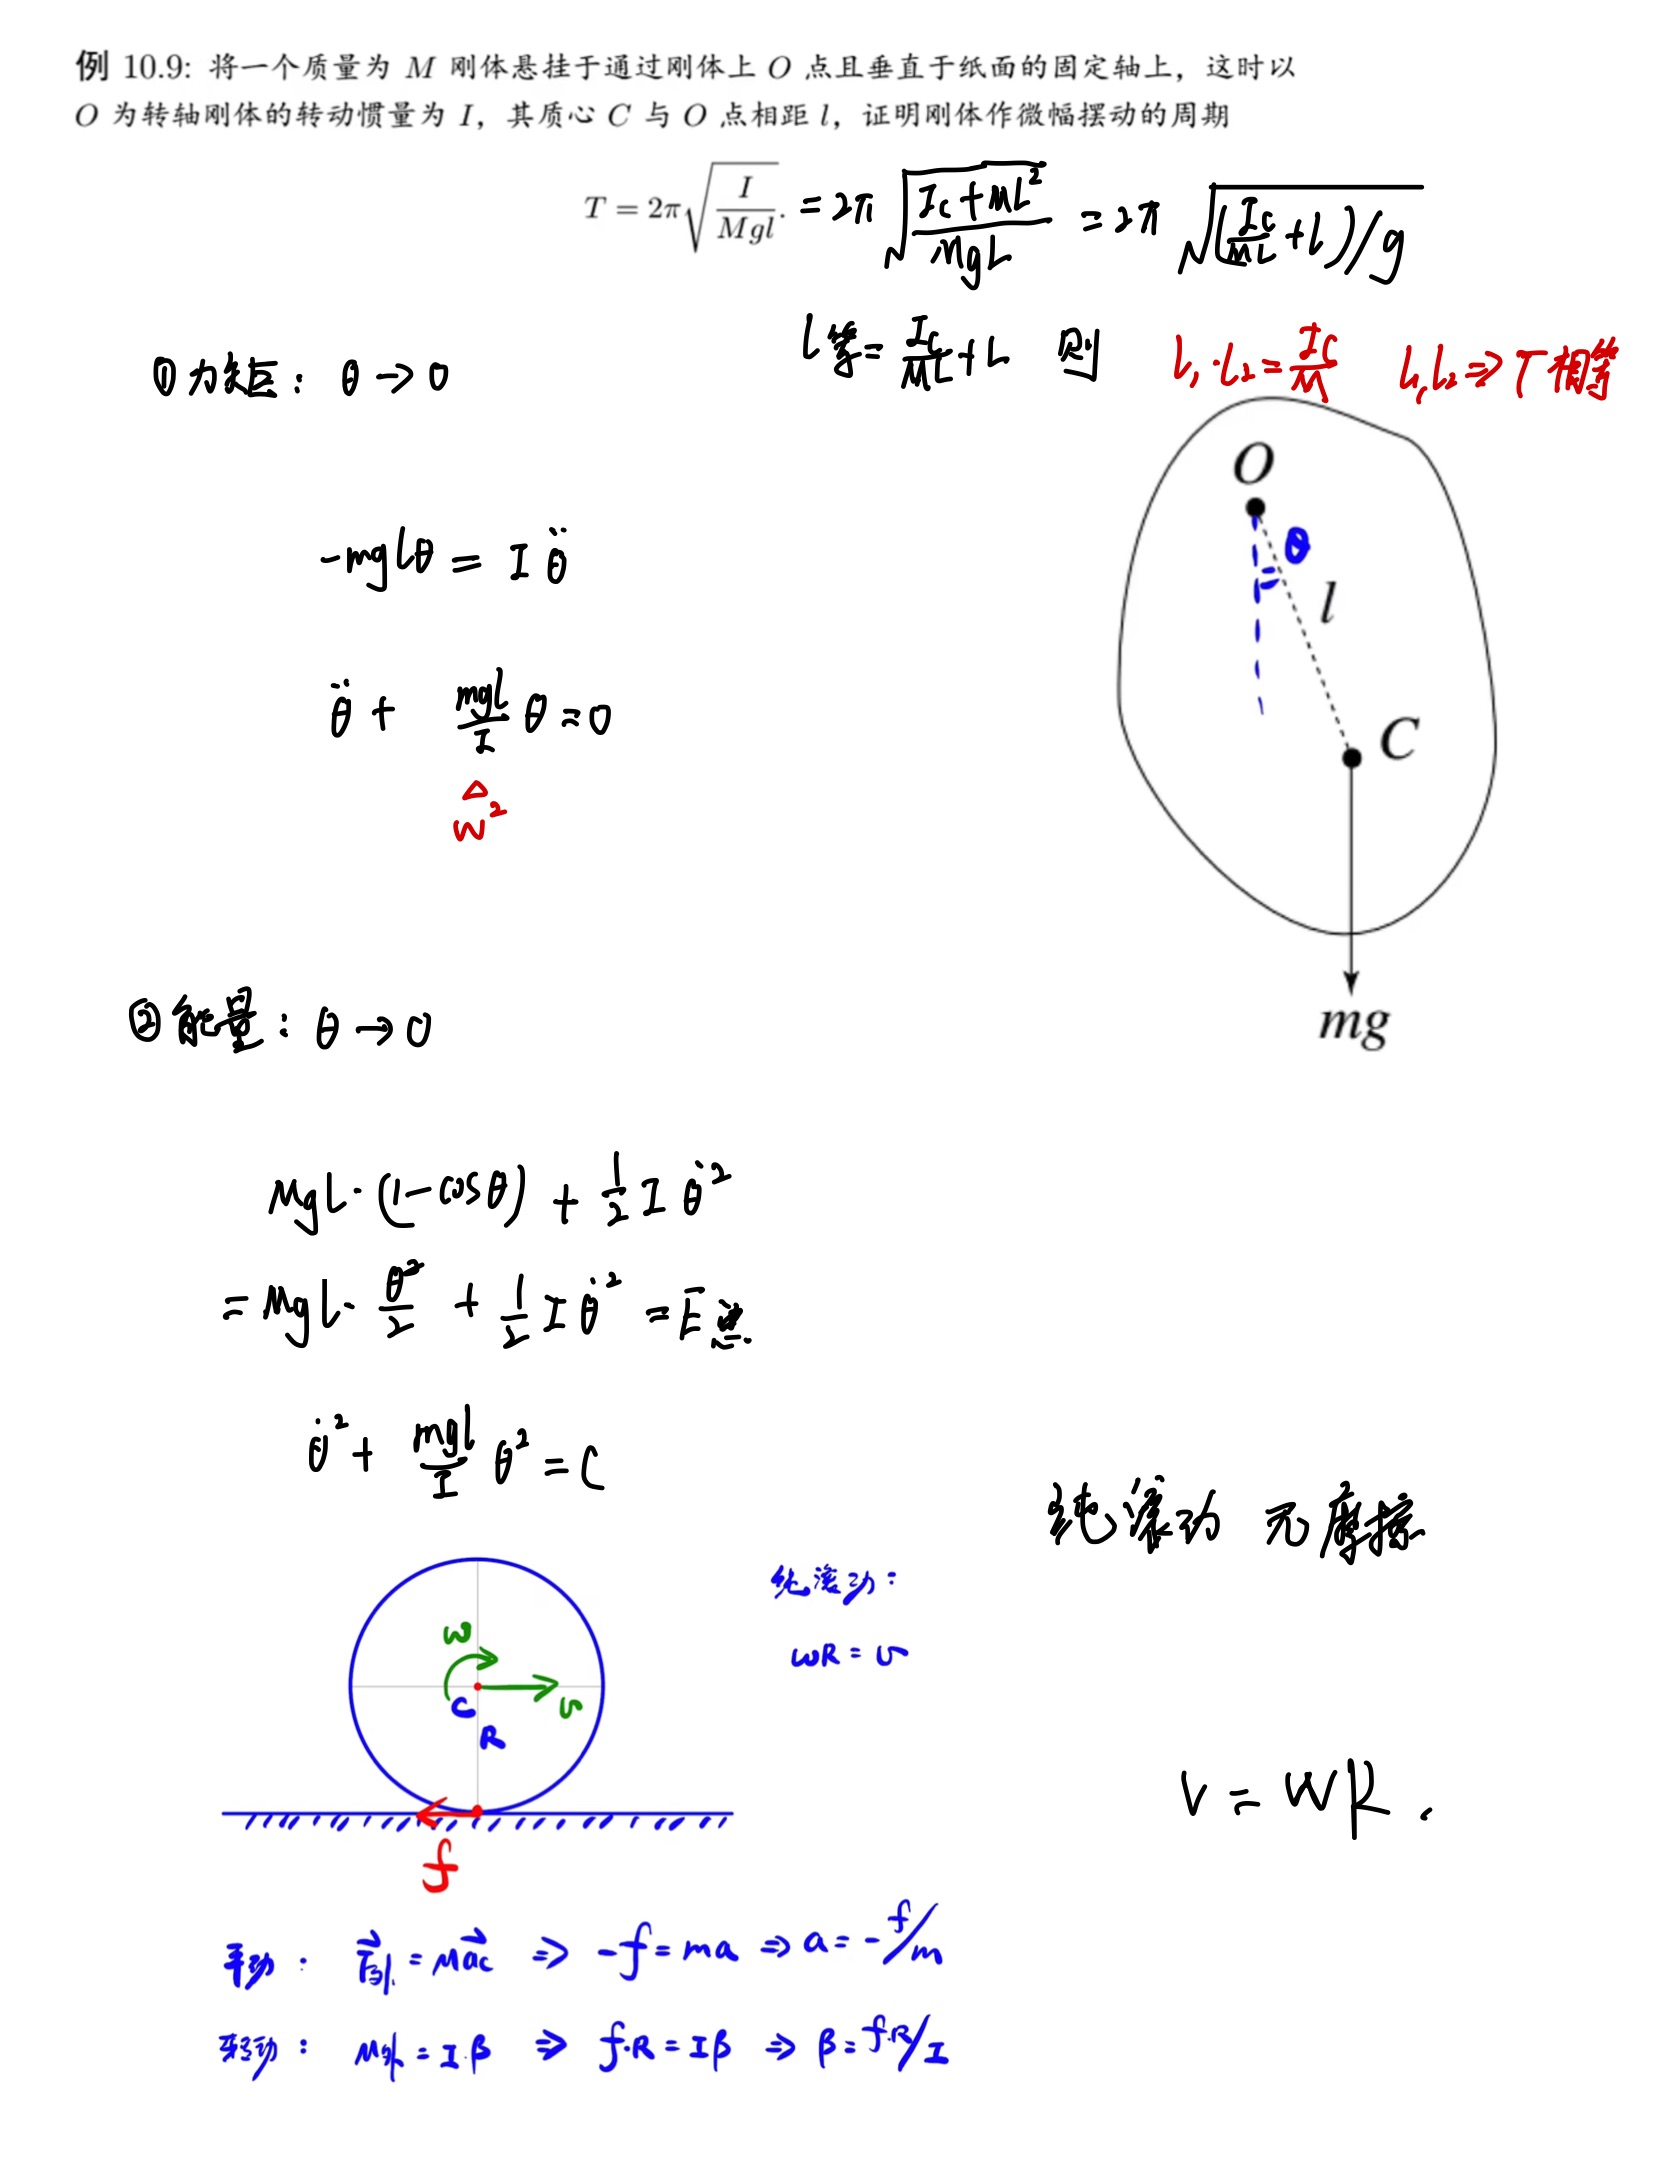 例 10.9: 将一个质量为 M 刚体悬挂于通过刚体上 O 点且垂直于纸面的固定轴上，这时以
O 为转轴刚体的转动惯量为 I，其质心 C 与 O 点相距 l，证明刚体作微幅摆动的周期
T = 2π√(I/Mgl). = 2π√((Ic+ML²)/MgL) = 2π√((Ic/ML+l)/g)
l等=Ic/ML+L 则 l₁·l₂=Ic/M l₁,l₂⇒T相等
①力矩：θ→0
O
θ
-mglθ = I θ̈
l
θ̈ + mgl/I θ=0
C
Δ
ω²
②能量：θ→0
mg
MgL·(1-cosθ) + 1/2 I θ̇²
=MgL·θ²/2 + 1/2 I θ̇² = E总
θ̇² + mgl/I θ² = C
纯滚动 无摩擦
纯滚动：
ω
ωR = v
C
v
R
V = WR.
f
平动： F⃗外=Ma⃗c ⇒ -f=ma ⇒ a=-f/m
转动： M外=I·β ⇒ f·R=Iβ ⇒ β=f·R/I